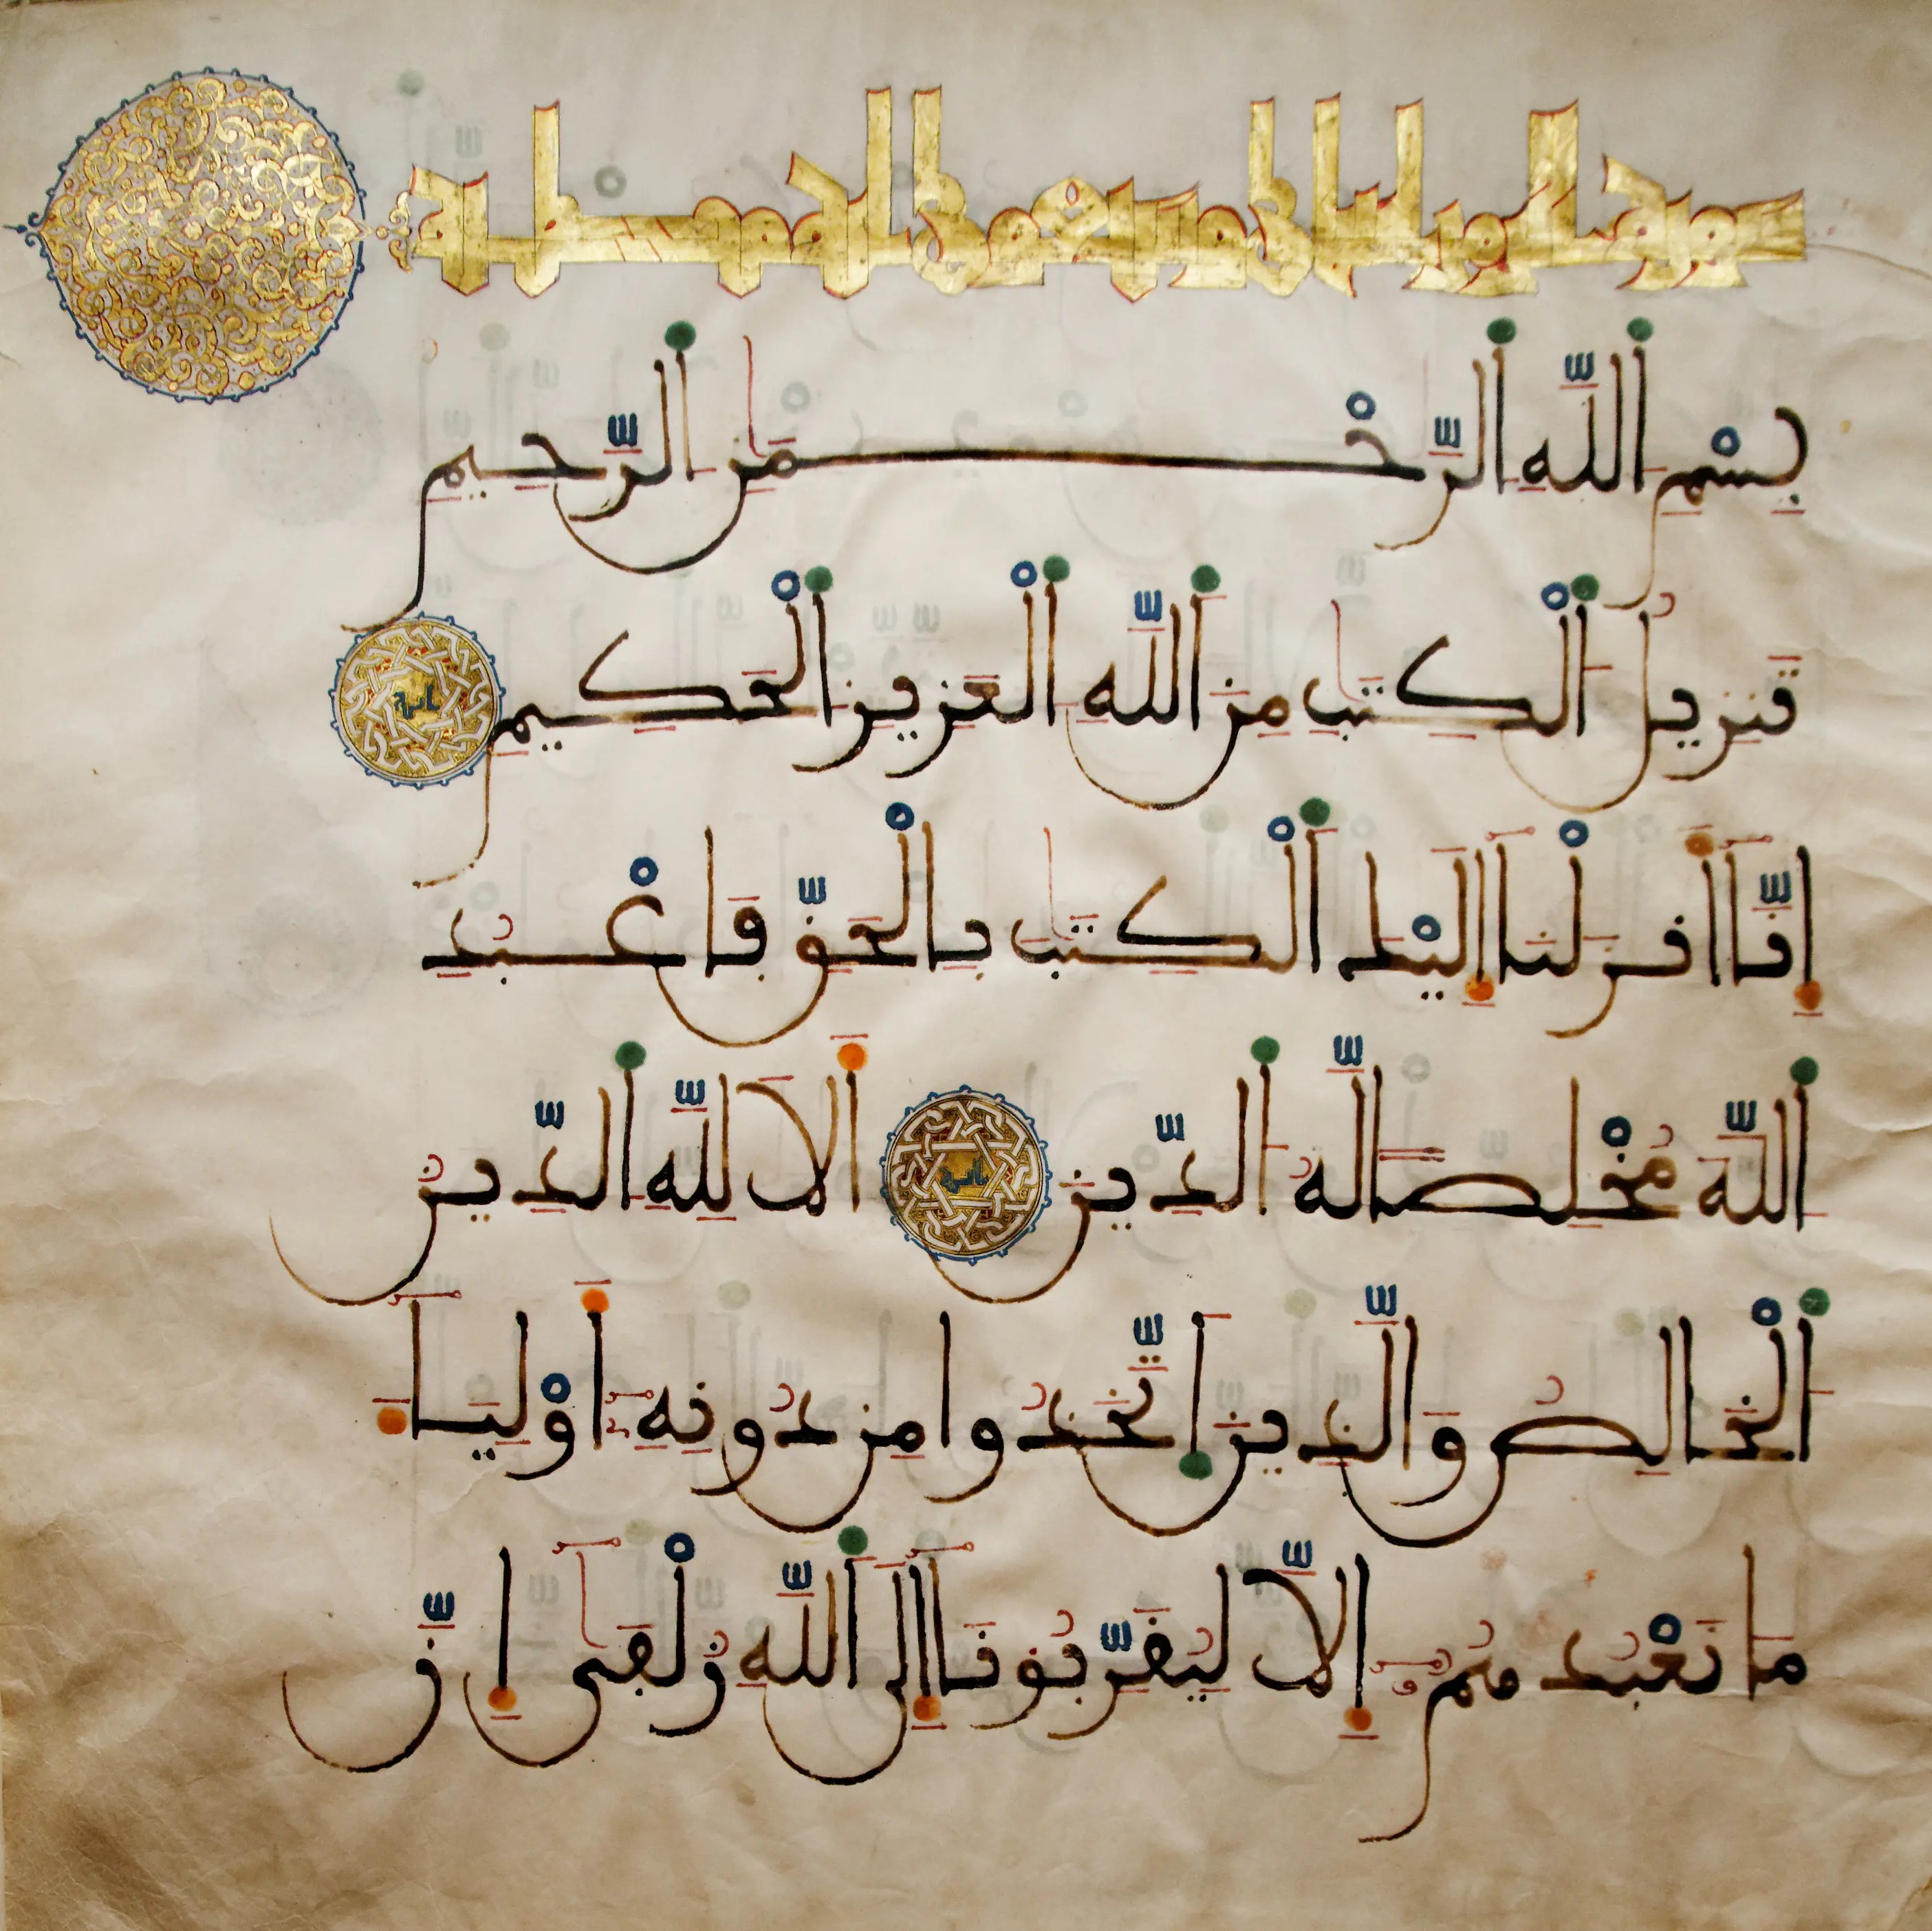 سورة
بِسْمِ اللَّهِ الرَّحْمَٰنِ الرَّحِيمِ
تَنزِيلُ الْكِتَٰبِ مِنَ اللَّهِ الْعَزِيزِ الْحَكِيمِ
إِنَّآ أَنزَلْنَآ إِلَيْكَ الْكِتَٰبَ بِالْحَقِّ فَاعْبُدِ
اللَّهَ مُخْلِصًا لَّهُ الدِّينَ أَلَا لِلَّهِ الدِّينُ
الْخَالِصُ وَالَّذِينَ اتَّخَذُوا مِن دُونِهِ أَوْلِيَآءَ
مَا نَعْبُدُهُمُ إِلَّا لِيُقَرِّبُونَآ إِلَى اللَّهِ زُلْفَىٰٓ إِنَّ